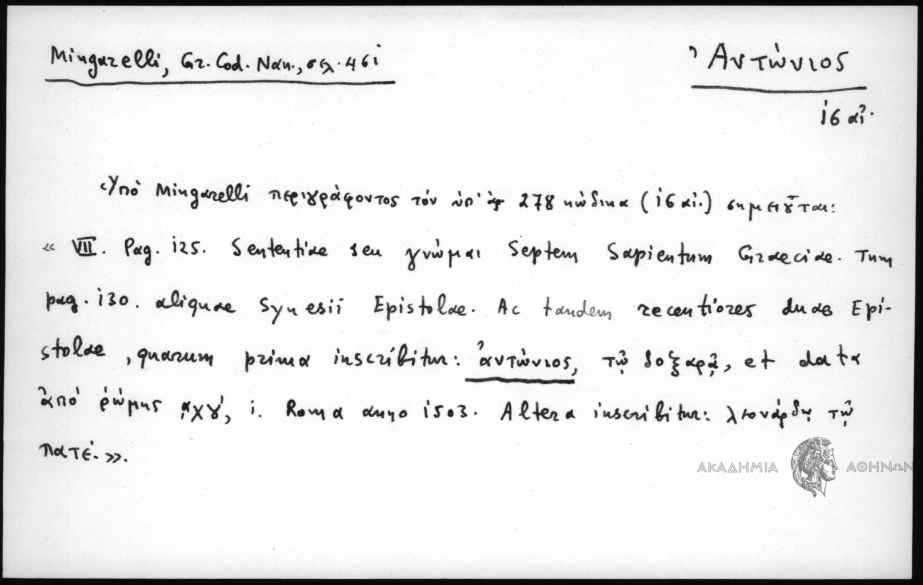 Mingarelli, Gr. Cod. Nan., σελ. 461
Ἀντώνιος
16 αἰ.
Ὑπὸ Mingarelli περιγράφοντος τὸν ὑπ' ἀρ 278 κώδικα (16 αἰ.) σημειοῦται:
« VII. Pag. 125. Sententiae seu γνῶμαι Septem Sapientum Graeciae. Tum
pag. 130. aliquae Synesii Epistolae. Ac tandem recentiores duae Epi-
stolae, quarum prima inscribitur: ἀντώνιος, τῷ δοξαρᾷ, et data
ἀπὸ ῥώμης ͵αχγ´, i. Roma anno 1503. Altera inscribitur: λεονάρδῳ τῷ
πατέ. ».
ΑΚΑΔΗΜΙΑ ΑΘΗΝΩΝ